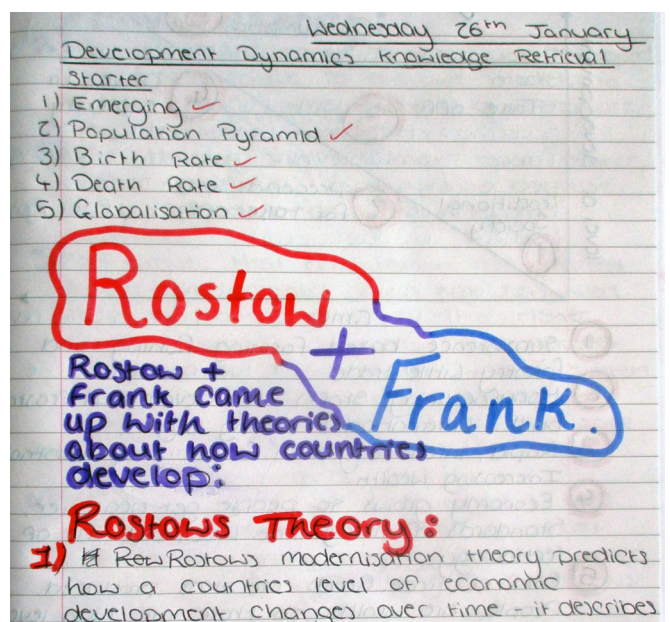 Wednesday 26th January
Development Dynamics Knowledge Retrieval
Starter
1) Emerging ✓
2) Population Pyramid ✓
3) Birth Rate ✓
4) Death Rate ✓
5) Globalisation ✓
Rostow
+
Frank.
Rostow +
Frank came
up with theories
about how countries
develop:
Rostows Theory:
1) Rostows modernisation theory predicts
how a countries level of economic
development changes over time - it describes